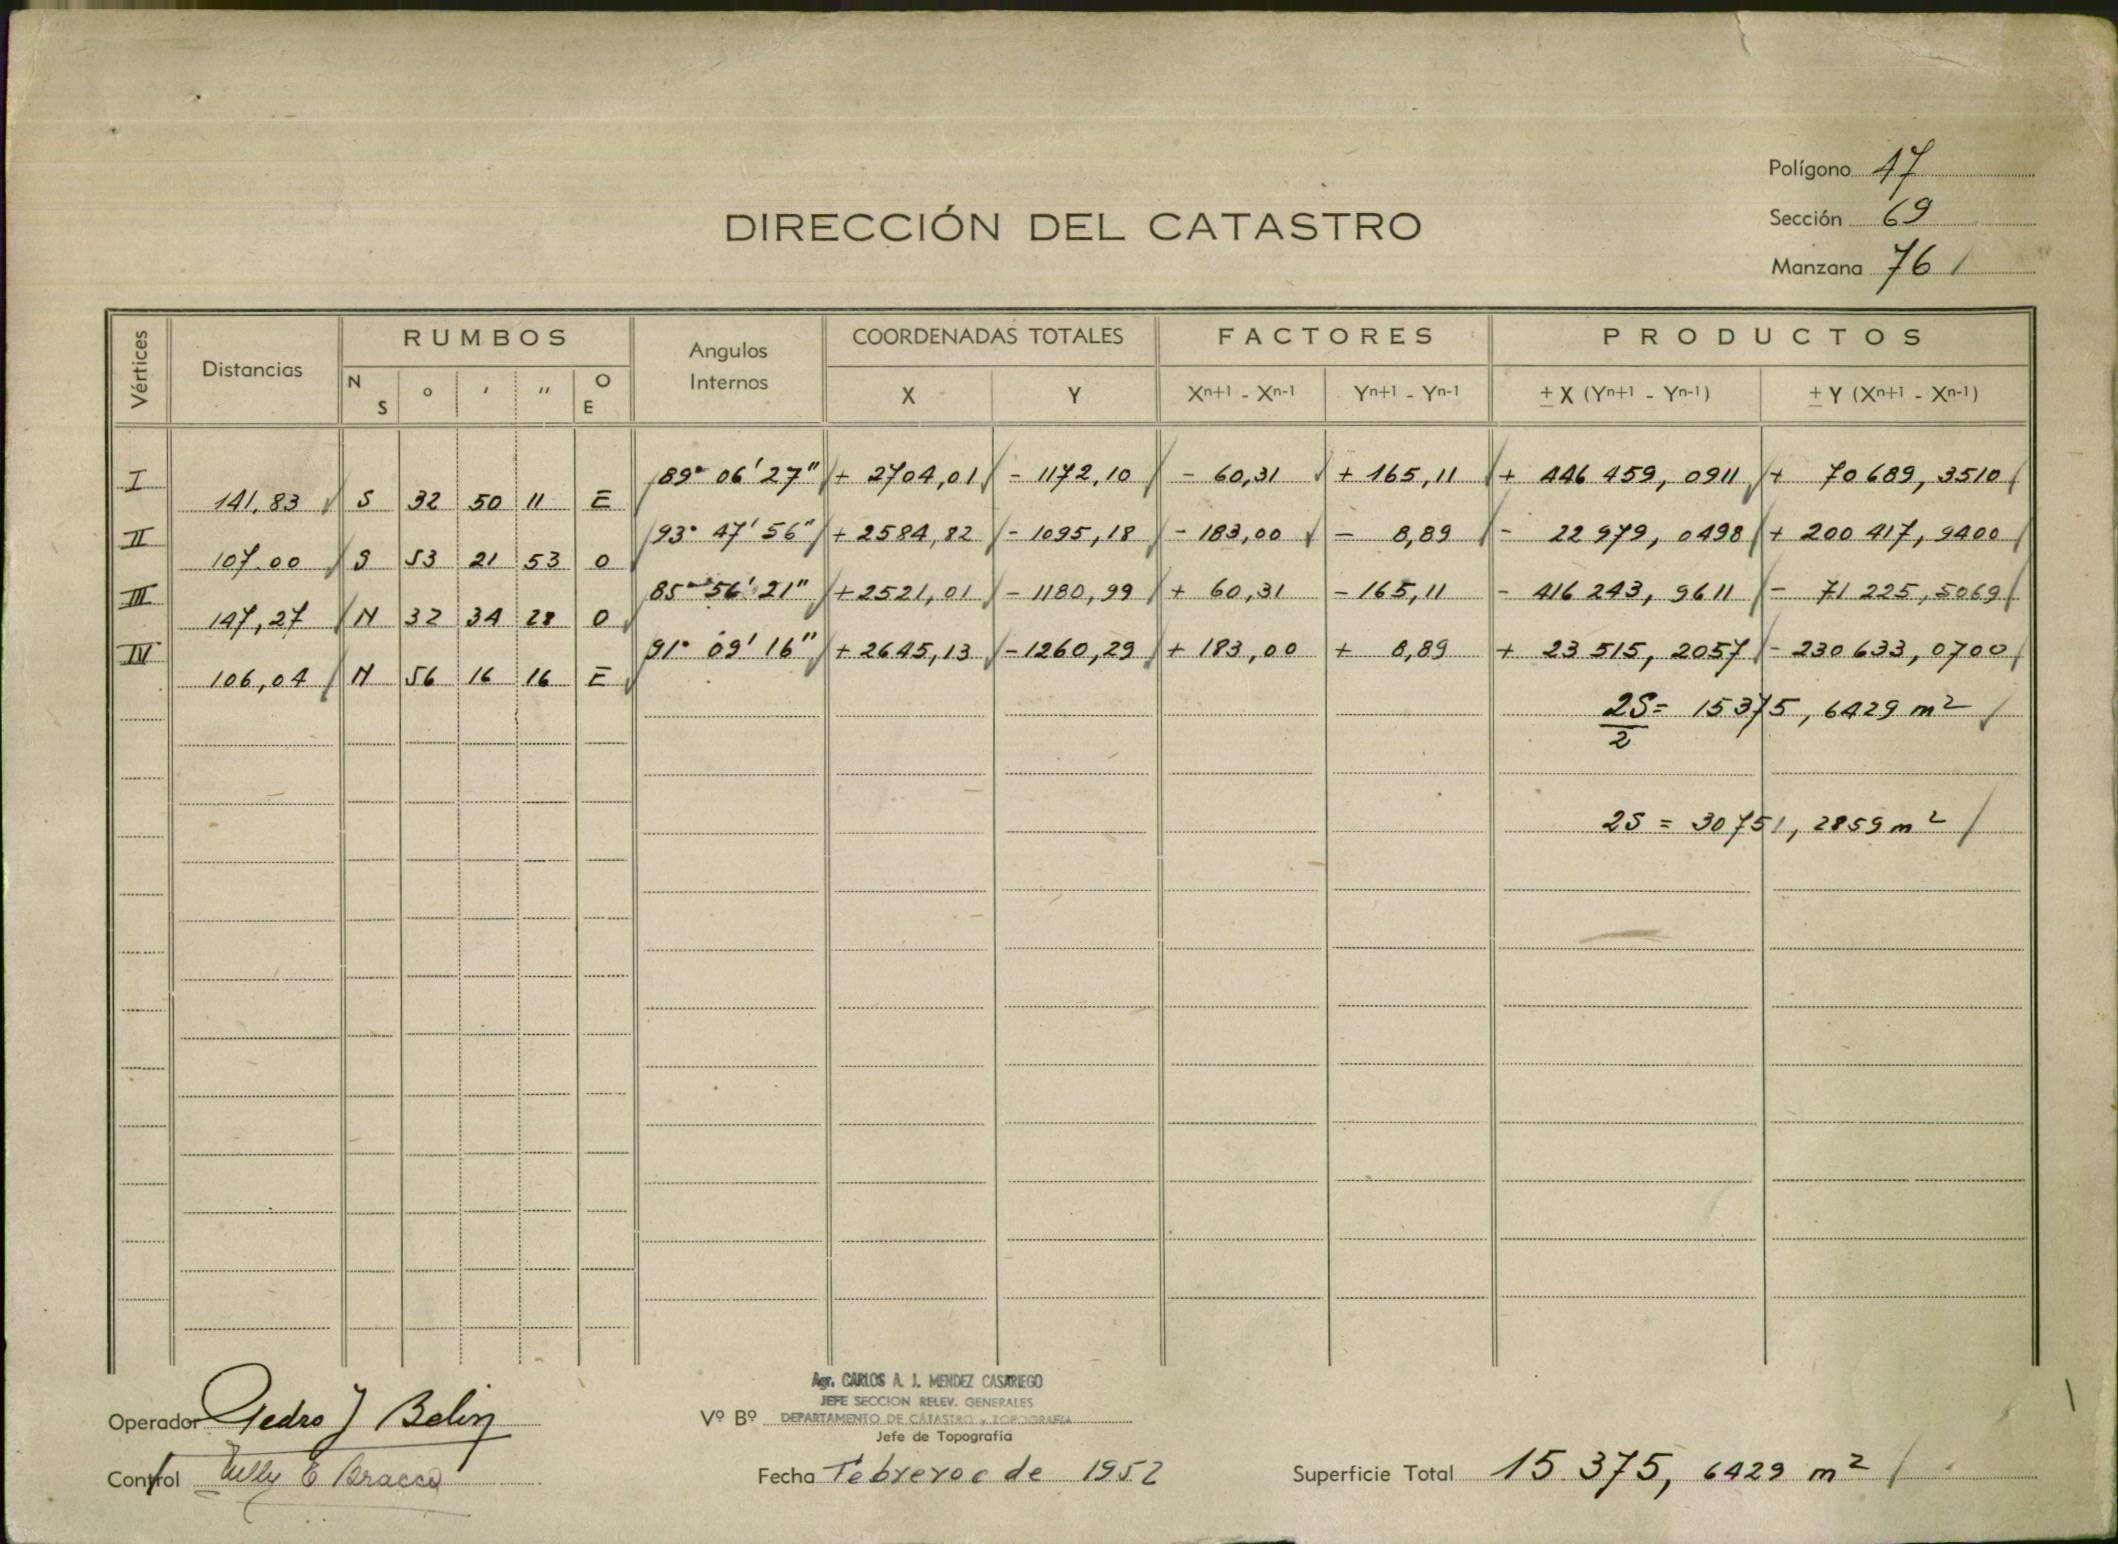 Polígono 47
Sección 69
Manzana 76
DIRECCIÓN DEL CATASTRO
Vértices Distancias RUMBOS Angulos Internos COORDENADAS TOTALES FACTORES PRODUCTOS
N S ° ′ ″ O E X Y Xn+1 - Xn-1 Yn+1 - Yn-1 ± X (Yn+1 - Yn-1) ± Y (Xn+1 - Xn-1)
I 89° 06' 27" + 2704,01 - 1172,10 - 60,31 + 165,11 + 446 459, 0911 + 70 689, 3510
141,83 S 32 50 11 E
II 93° 47' 56" + 2584,82 - 1095,18 - 183,00 - 8,89 - 22 979, 0498 + 200 417, 9400
107.00 S 53 21 53 O
III 85° 56' 21" + 2521,01 - 1180,99 + 60,31 - 165,11 - 416 243, 9611 - 71 225, 5069
147,27 N 32 34 28 O
IV 91° 09' 16" + 2645,13 - 1260,29 + 183,00 + 8,89 + 23 515, 2057 - 230 633, 0700
106,04 N 56 16 16 E
2S/2 = 15 375, 6429 m²
2S = 30 751, 2859 m²
Operador Pedro J Belin
Control E Bracco
Vº Bº Agr. CARLOS A. J. MENDEZ CASARIEGO
JEFE SECCION RELEV. GENERALES
DEPARTAMENTO DE CATASTRO y TOPOGRAFIA
Jefe de Topografía
Fecha Febrero de 1952
Superficie Total 15.375, 6429 m²